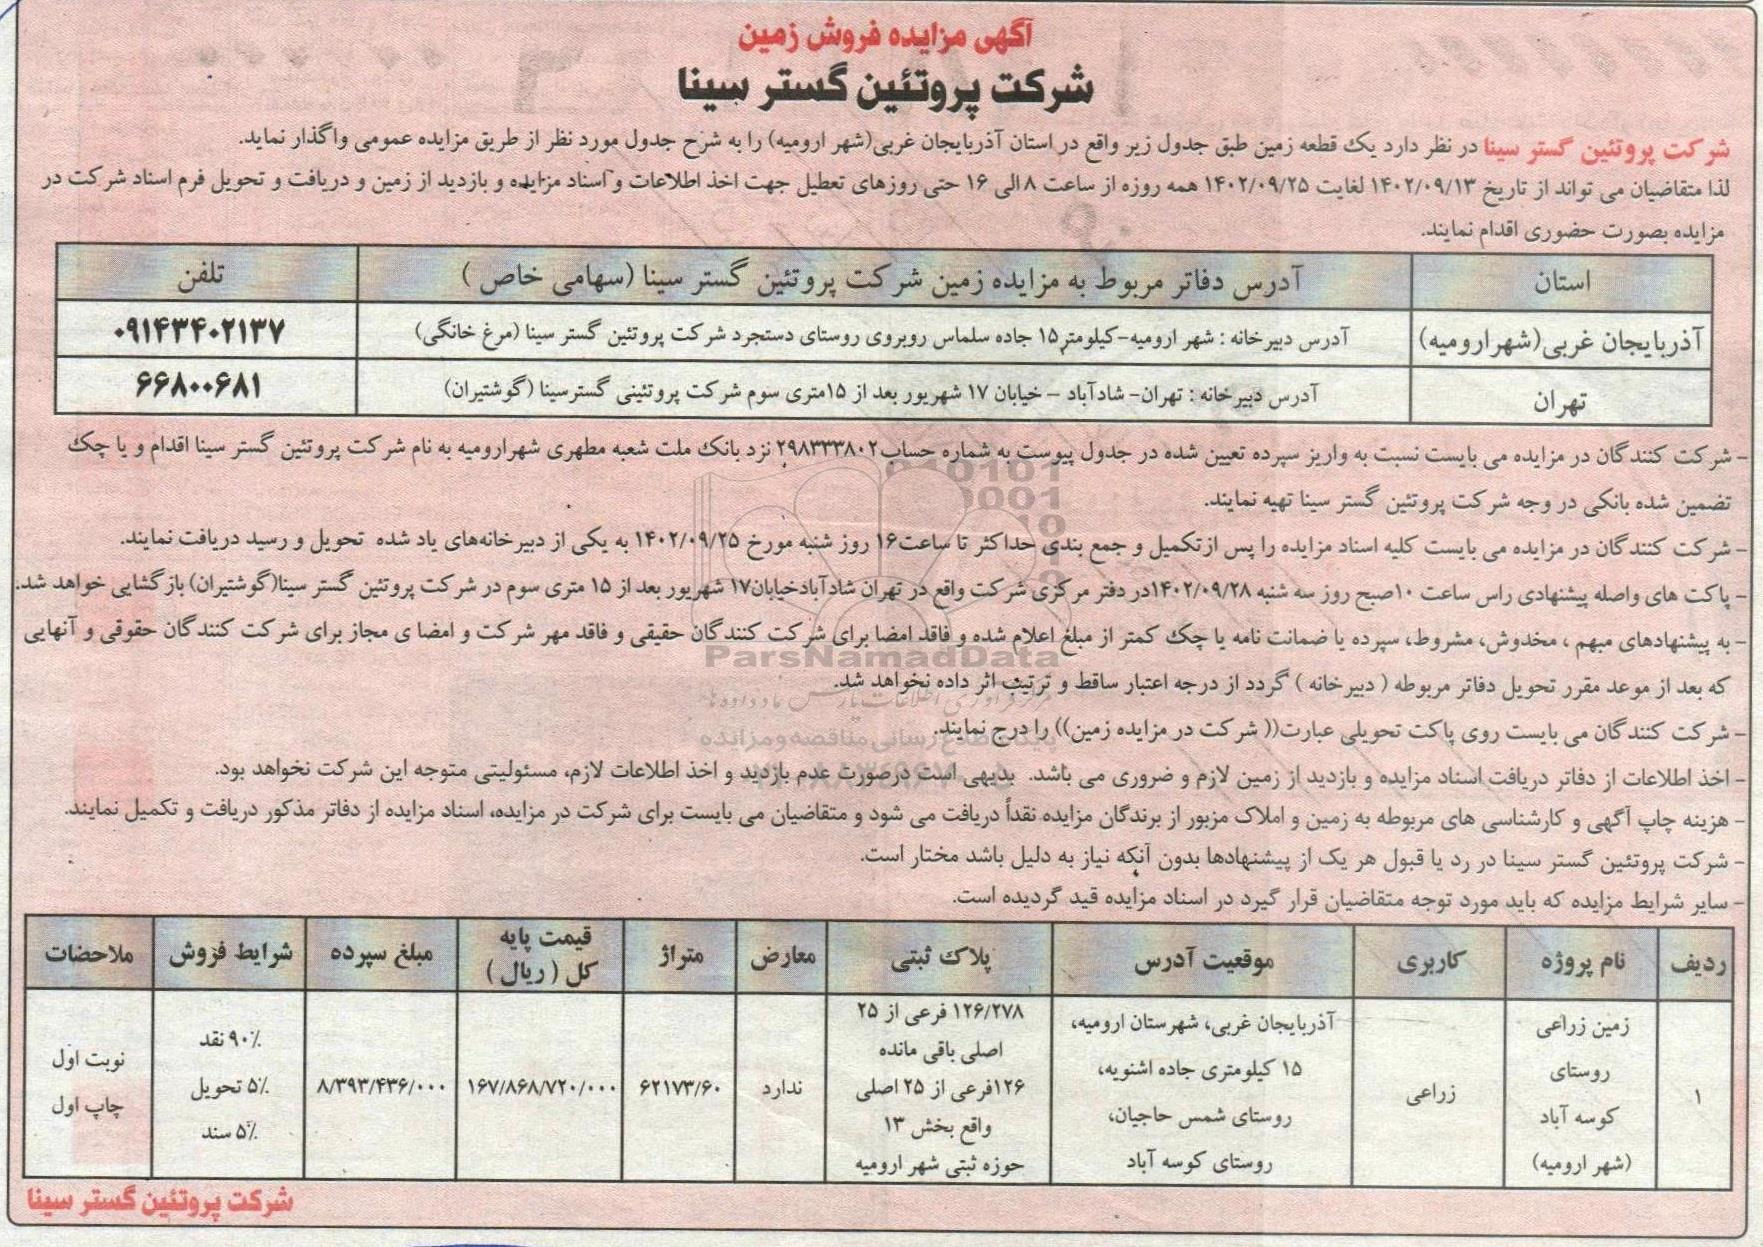 آگهی مزایده فروش زمین
شرکت پروتئین گستر سینا
شرکت پروتئین گستر سینا در نظر دارد یک قطعه زمین طبق جدول زیر واقع در استان آذربایجان غربی(شهر ارومیه) را به شرح جدول مورد نظر از طریق مزایده عمومی واگذار نماید.
لذا متقاضیان می تواند از تاریخ ۱۴۰۲/۰۹/۱۳ لغایت ۱۴۰۲/۰۹/۲۵ همه روزه از ساعت ۸ الی ۱۶ حتی روزهای تعطیل جهت اخذ اطلاعات و اسناد مزایده و بازدید از زمین و دریافت و تحویل فرم اسناد شرکت در
مزایده بصورت حضوری اقدام نمایند.
استان	آدرس دفاتر مربوط به مزایده زمین شرکت پروتئین گستر سینا (سهامی خاص )	تلفن
آذربایجان غربی(شهرارومیه)	آدرس دبیرخانه : شهر ارومیه-کیلومتر۱۵ جاده سلماس روبروی روستای دستجرد شرکت پروتئین گستر سینا (مرغ خانگی)	۰۹۱۴۳۴۰۲۱۳۷
تهران	آدرس دبیرخانه : تهران- شادآباد - خیابان ۱۷ شهریور بعد از ۱۵متری سوم شرکت پروتئینی گسترسینا (گوشتیران)	۶۶۸۰۰۶۸۱
- شرکت کنندگان در مزایده می بایست نسبت به واریز سپرده تعیین شده در جدول پیوست به شماره حساب۲۹۸۳۳۳۸۰۲ نزد بانک ملت شعبه مطهری شهرارومیه به نام شرکت پروتئین گستر سینا اقدام و یا چک
تضمین شده بانکی در وجه شرکت پروتئین گستر سینا تهیه نمایند.
- شرکت کنندگان در مزایده می بایست کلیه اسناد مزایده را پس ازتکمیل و جمع بندی حداکثر تا ساعت۱۶ روز شنبه مورخ ۱۴۰۲/۰۹/۲۵ به یکی از دبیرخانه‌های یاد شده تحویل و رسید دریافت نمایند.
- پاکت های واصله پیشنهادی راس ساعت ۱۰صبح روز سه شنبه ۱۴۰۲/۰۹/۲۸در دفتر مرکزی شرکت واقع در تهران شادآبادخیابان۱۷ شهریور بعد از ۱۵ متری سوم در شرکت پروتئین گستر سینا(گوشتیران) بازگشایی خواهد شد.
- به پیشنهادهای مبهم ، مخدوش، مشروط، سپرده یا ضمانت نامه یا چک کمتر از مبلغ اعلام شده و فاقد امضا برای شرکت کنندگان حقیقی و فاقد مهر شرکت و امضا ی مجاز برای شرکت کنندگان حقوقی و آنهایی
که بعد از موعد مقرر تحویل دفاتر مربوطه ( دبیرخانه ) گردد از درجه اعتبار ساقط و ترتیب اثر داده نخواهد شد.
- شرکت کنندگان می بایست روی پاکت تحویلی عبارت(( شرکت در مزایده زمین)) را درج نمایند.
- اخذ اطلاعات از دفاتر دریافت اسناد مزایده و بازدید از زمین لازم و ضروری می باشد. بدیهی است درصورت عدم بازدید و اخذ اطلاعات لازم، مسئولیتی متوجه این شرکت نخواهد بود.
- هزینه چاپ آگهی و کارشناسی های مربوطه به زمین و املاک مزبور از برندگان مزایده نقداً دریافت می شود و متقاضیان می بایست برای شرکت در مزایده، اسناد مزایده از دفاتر مذکور دریافت و تکمیل نمایند.
- شرکت پروتئین گستر سینا در رد یا قبول هر یک از پیشنهادها بدون آنکه نیاز به دلیل باشد مختار است.
- سایر شرایط مزایده که باید مورد توجه متقاضیان قرار گیرد در اسناد مزایده قید گردیده است.
ParsNamadData
پایگاه اطلاع رسانی مناقصه و مزایده
ردیف	نام پروژه	کاربری	موقعیت آدرس	پلاک ثبتی	معارض	متراژ	قیمت پایه کل ( ریال )	مبلغ سپرده	شرایط فروش	ملاحضات
۱
زمین زراعی
روستای
کوسه آباد
(شهر ارومیه)
زراعی
آذربایجان غربی، شهرستان ارومیه،
۱۵ کیلومتری جاده اشنویه،
روستای شمس حاجیان،
روستای کوسه آباد
۱۲۶/۲۷۸ فرعی از ۲۵
اصلی باقی مانده
۱۲۶فرعی از ۲۵ اصلی
واقع بخش ۱۳
حوزه ثبتی شهر ارومیه
ندارد
۶۲۱۷۳/۶۰
۱۶۷/۸۶۸/۷۲۰/۰۰۰
۸/۳۹۳/۴۳۶/۰۰۰
۹۰٪ نقد
۵٪ تحویل
۵٪ سند
نوبت اول
چاپ اول
شرکت پروتئین گستر سینا